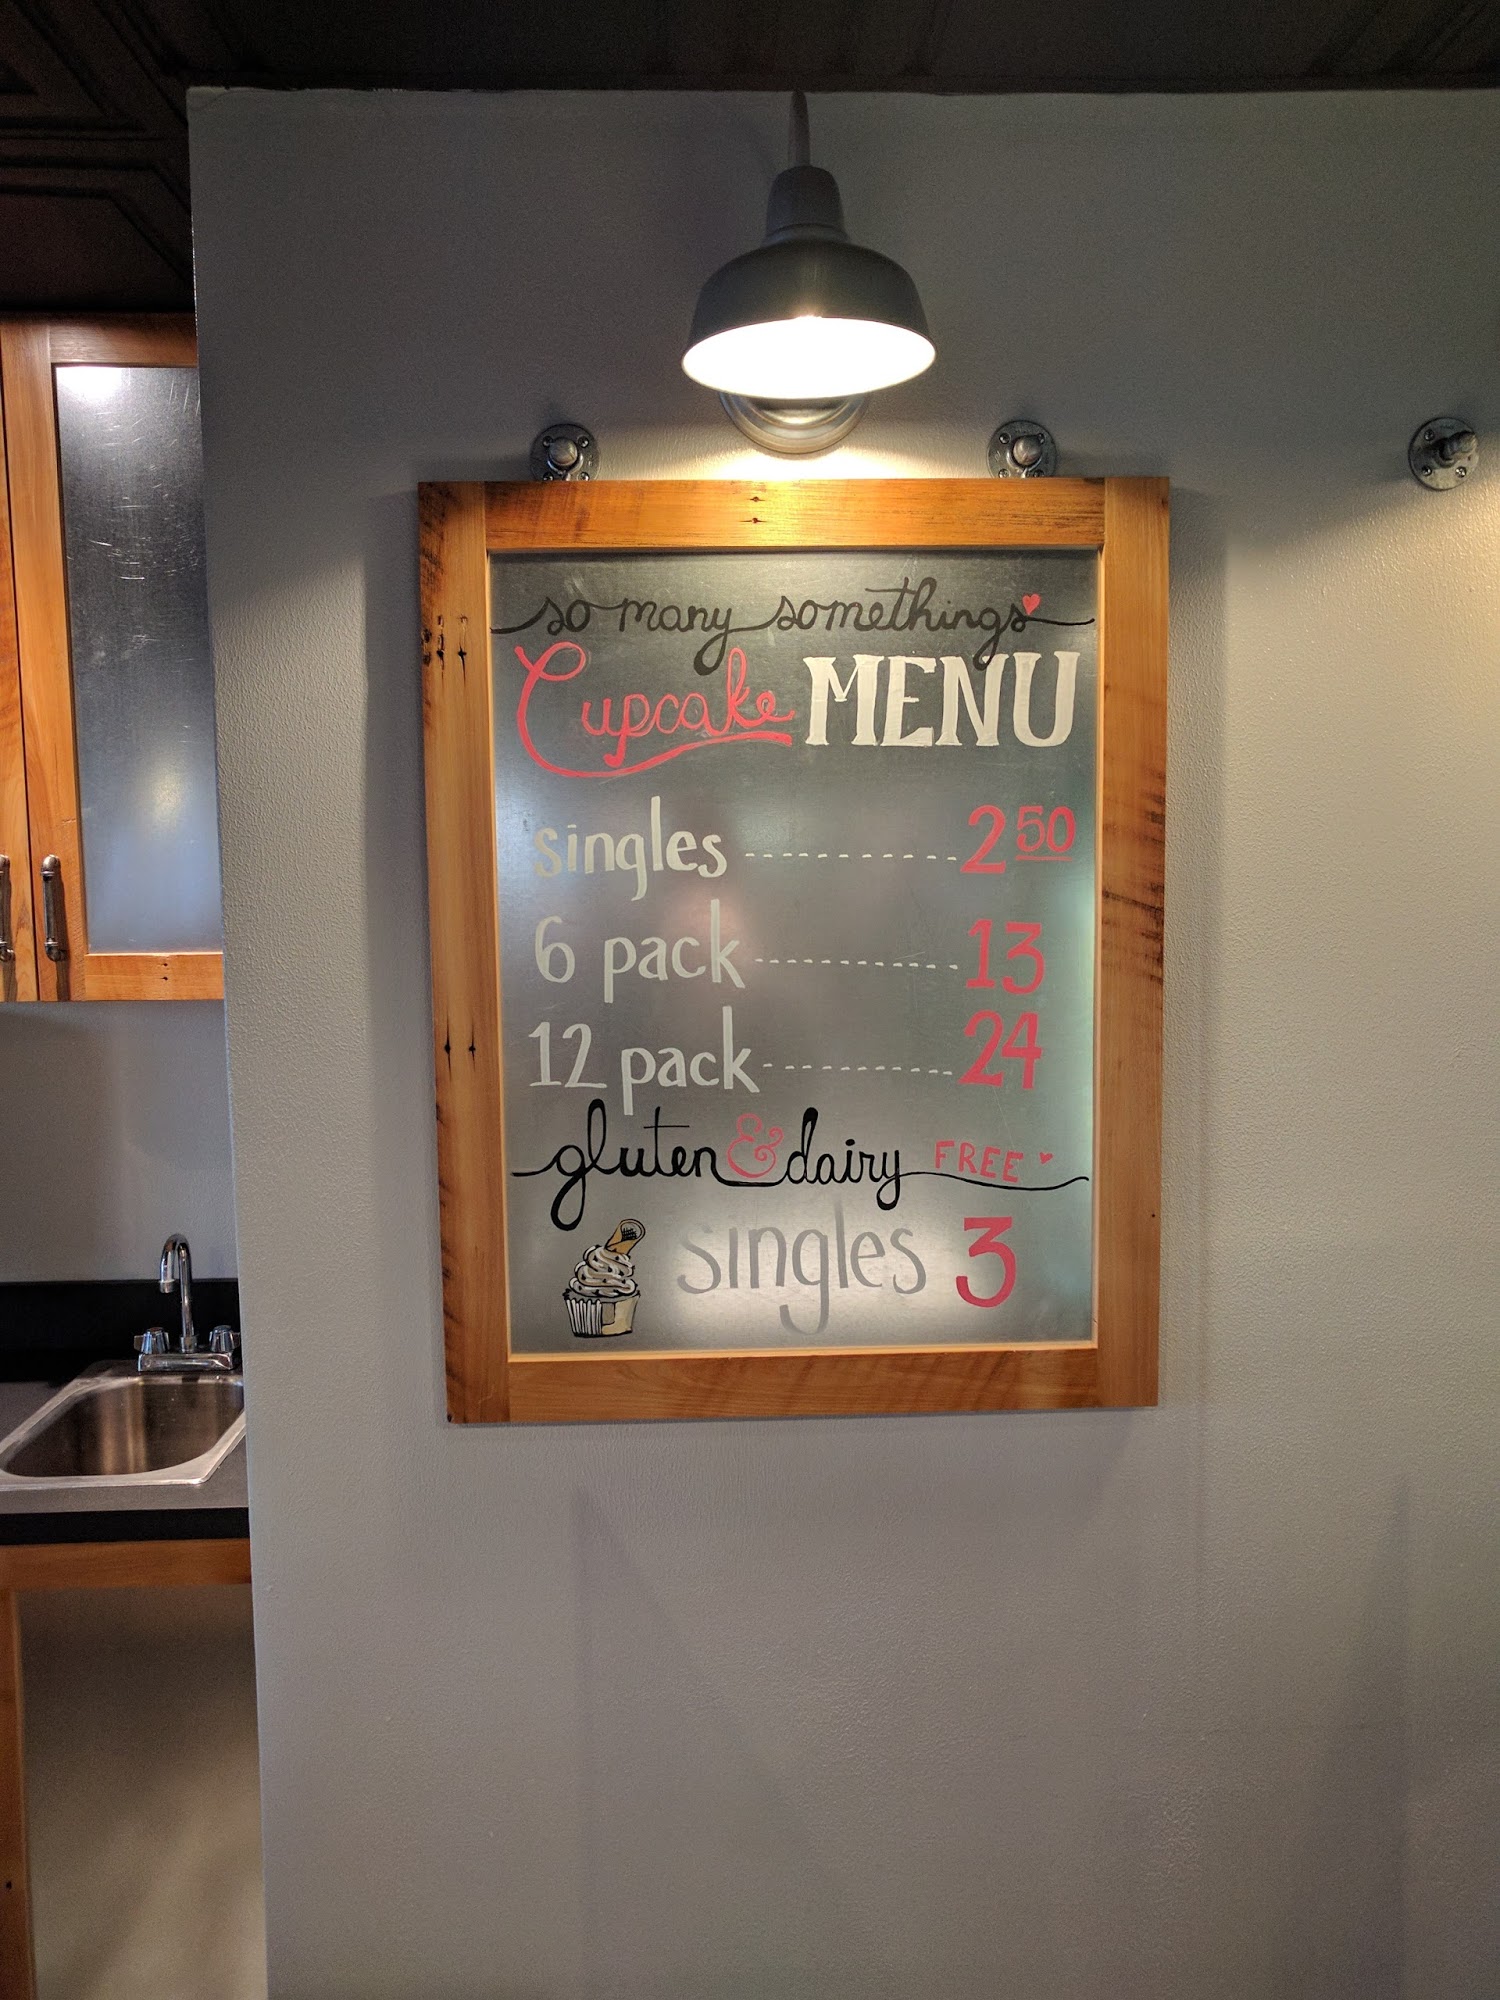 so many somethings
Cupcake MENU
singles ------------ 2 50
6 pack ------------ 13
12 pack ----------- 24
gluten & dairy FREE
singles 3